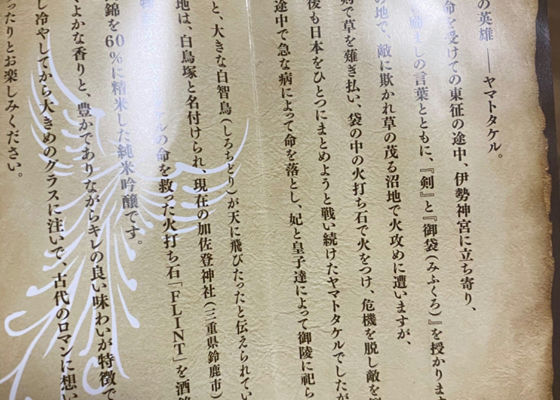 の英雄 ――ヤマトタケル。
命を受けての東征の途中、伊勢神宮に立ち寄り、
励ましの言葉とともに、『剣』と『御袋(みふくろ)』を授かりま
の地で、敵に欺かれ草の茂る沼地で火攻めに遭いますが、
剣で草を薙ぎ払い、袋の中の火打ち石で火をつけ、危機を脱し敵を
後も日本をひとつにまとめようと戦い続けたヤマトタケルでしたが
途中で急な病によって命を落とし、妃と皇子達によって御陵に祀ら
と、大きな白智鳥(しろちどり)が天に飛びたったと伝えられてい
地は、白鳥塚と名付けられ、現在の加佐登神社(三重県鈴鹿市)
ルの命を救った火打ち石「FLINT」を酒銘
錦を60%に精米した純米吟醸です。
やかな香りと、豊かでありながらキレの良い味わいが特徴で
し冷やしてから大きめのグラスに注いで、古代のロマンに想い
ったりとお楽しみください。